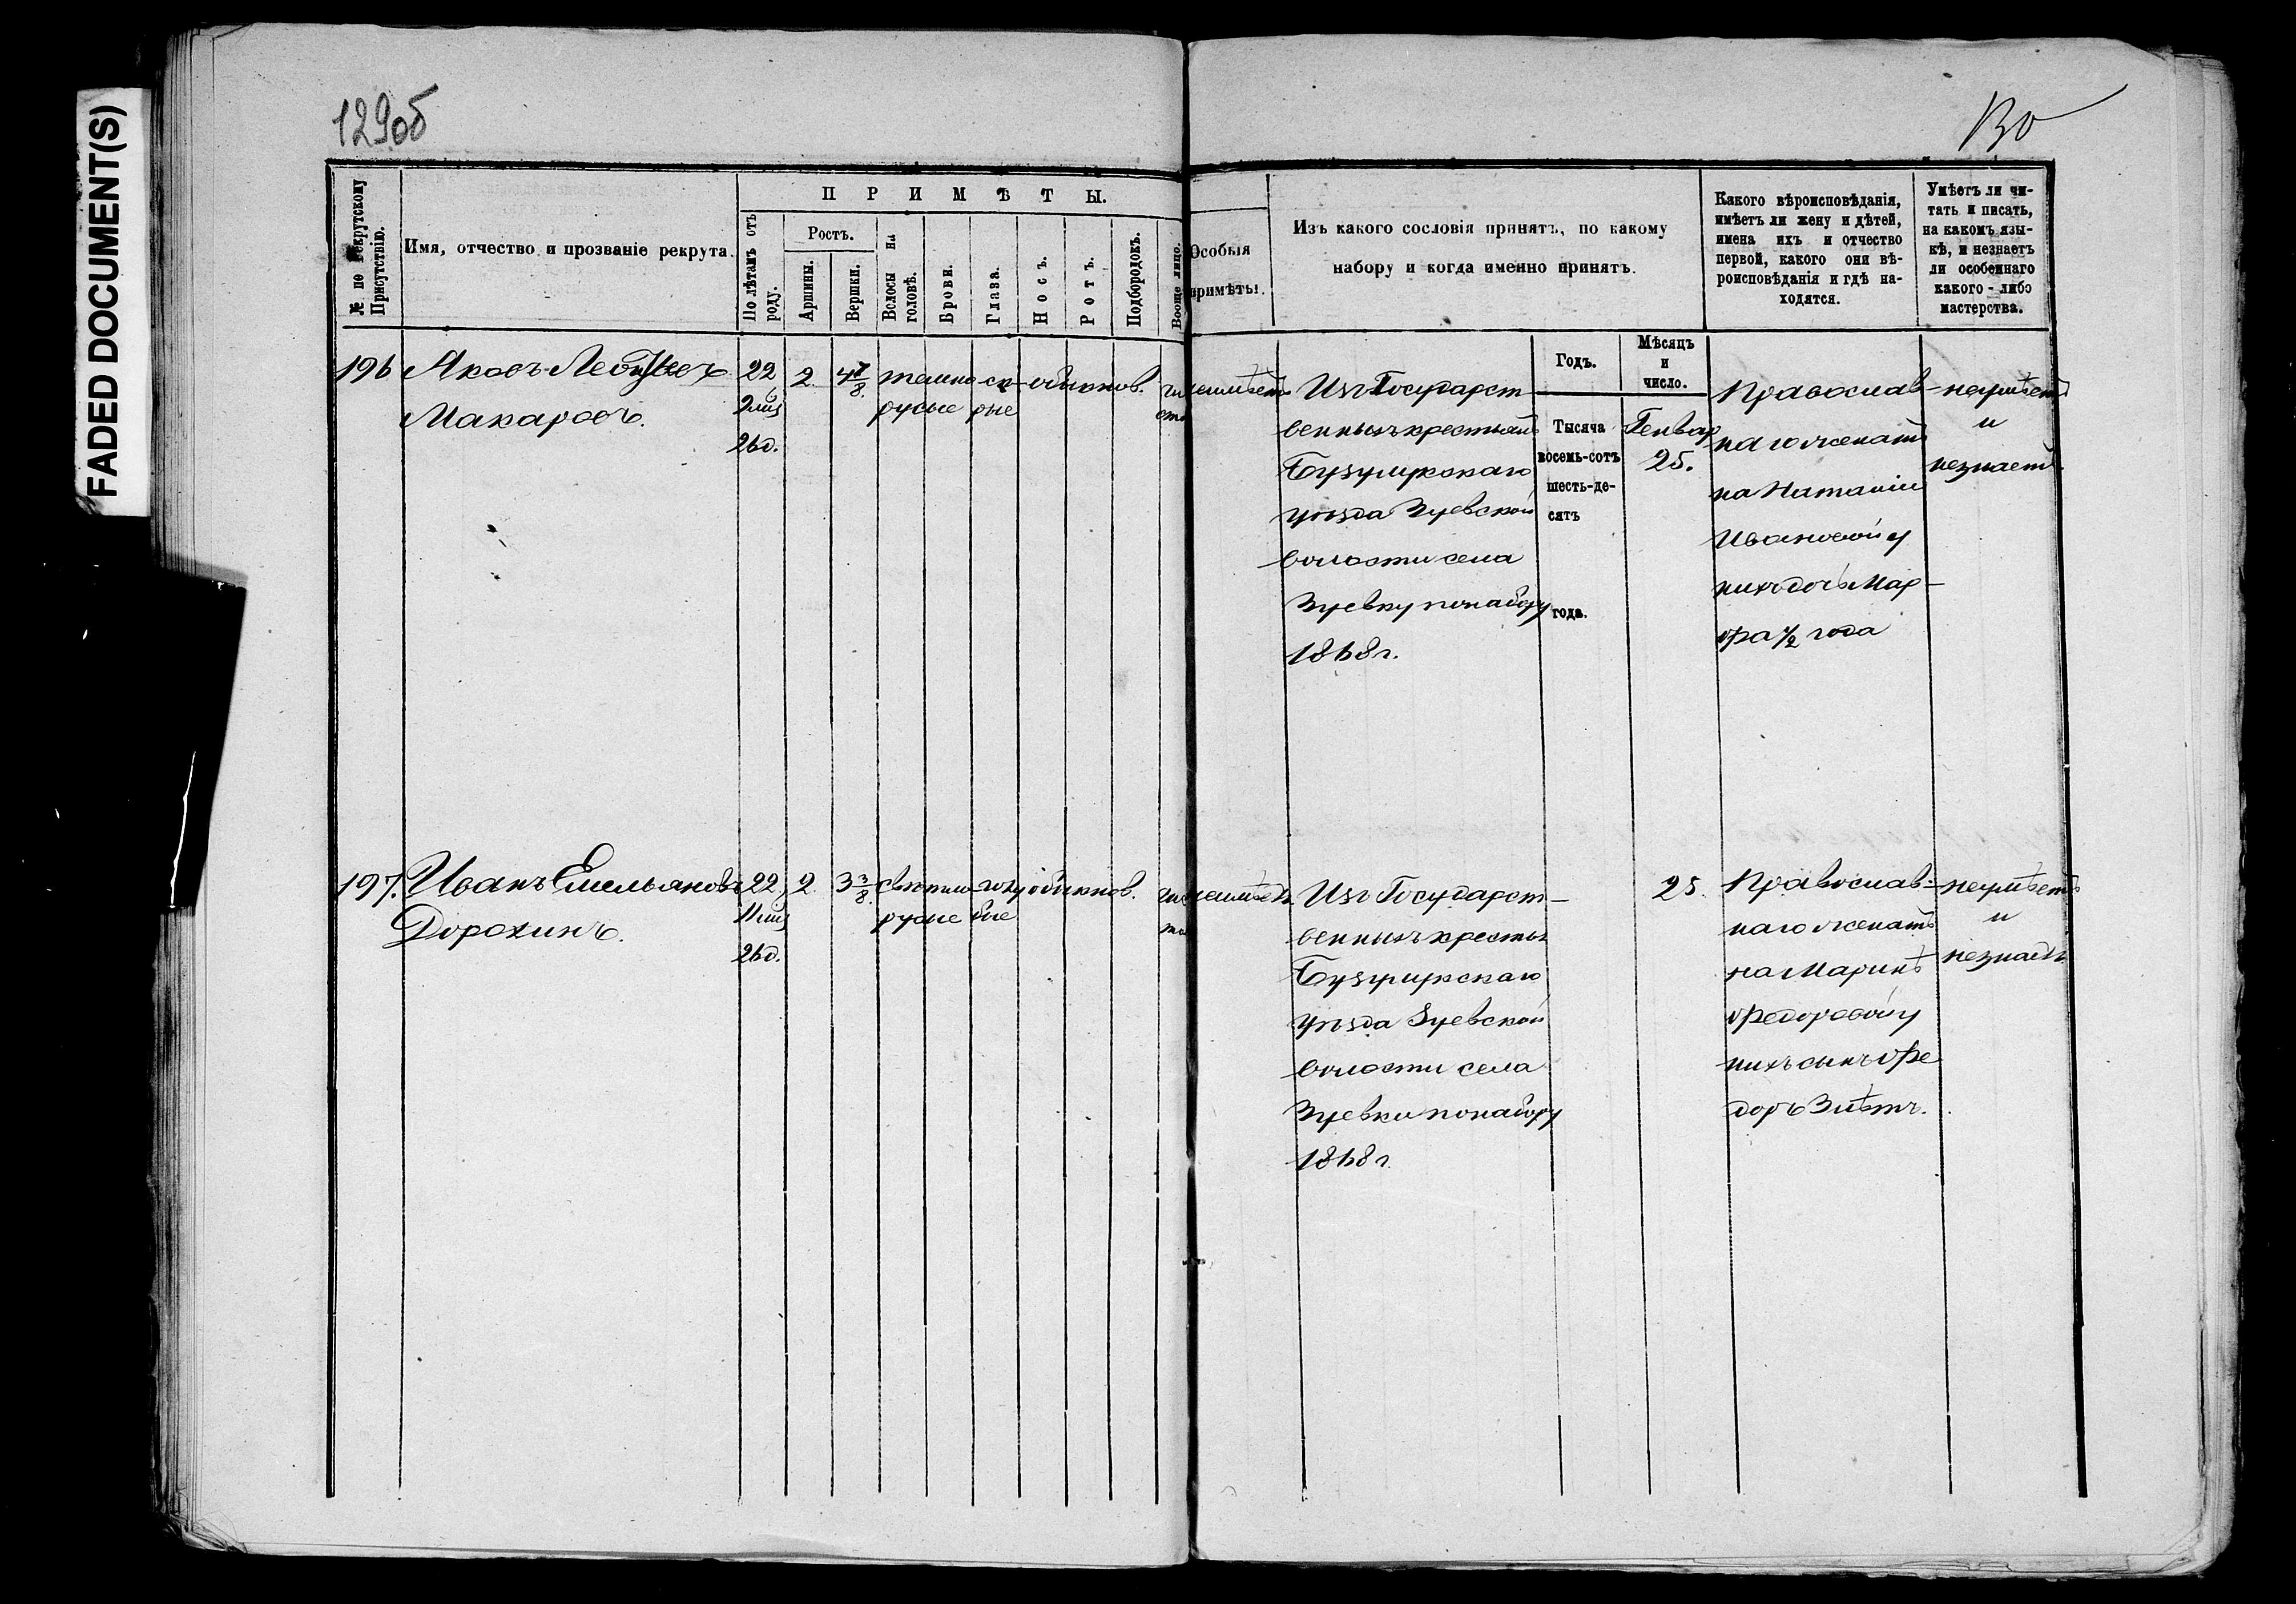 FADED DOCUMENT(S)
129об
130
№ по рекрутскому Присутствію.
Имя, отчество и прозваніе рекрута.
ПРИМѢТЫ.
По лѣтамъ отъ роду.
Ростъ.
Аршины.
Вершки.
Волосы на головѣ.
Брови.
Глаза.
Носъ.
Ротъ.
Подбородокъ.
Вообще лицо.
Особыя
примѣты.
Изъ какого сословія принятъ, по какому
набору и когда именно принятъ.
Какого вѣроисповѣданія,
имѣетъ ли жену и дѣтей,
имена ихъ и отчество
первой, какого они вѣ-
роисповѣданія и гдѣ на-
ходятся.
Умѣетъ ли чи-
тать и писать,
на какомъ язы-
кѣ, и незнаетъ
ли особеннаго
какого-либо
мастерства.
Годъ.
Мѣсяцъ
и
число.
Тысяча
восемь-сотъ
шесть-де-
сятъ
года.
196
Яковъ
Макаровъ.
22
2 мц
26 д.
2
4 7/8
темно-
русые
сѣ-
рые
обыкнов.
чи
сто
неимѣетъ
Изъ Государст
венныхъ крестьянъ
Бузулукскаго
уѣзда Зуевской
волости села
Зуевку по набору
1868 г.
Генвар
25.
Православ-
наго женатъ
на Наталіи
Ивановой у
нихъ дочь Мар-
фа 1/2 года
неумѣетъ
и
незнаетъ.
197.
Иванъ Емельяновъ
Дорохинъ.
22
11 мц
26 д.
2
3 3/8
свѣтло-
русые
голу
бые
обыкнов.
чис
то
неимѣетъ.
Изъ Государст-
венныхъ крестьян
Бузулукскаго
уѣзда Зуевской
волости села
Зуевки по набору
1868 г.
25.
Православ-
наго женатъ
на Маринѣ
Федоровой у
нихъ сынъ Фе
доръ 3 лѣтъ.
неумѣетъ
и
незнаетъ